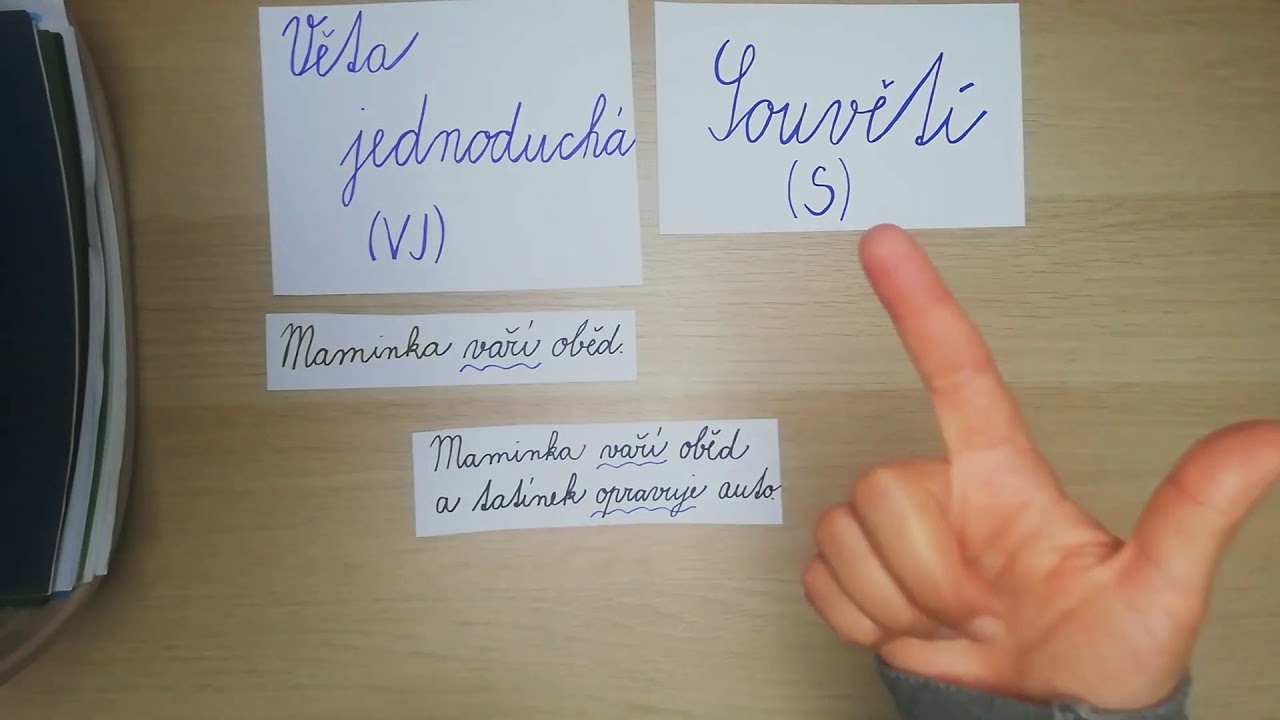 Věta
jednoduchá
(VJ)
Souvětí
(S)
Maminka vaří oběd.
Maminka vaří oběd
a tatínek opravuje auto.